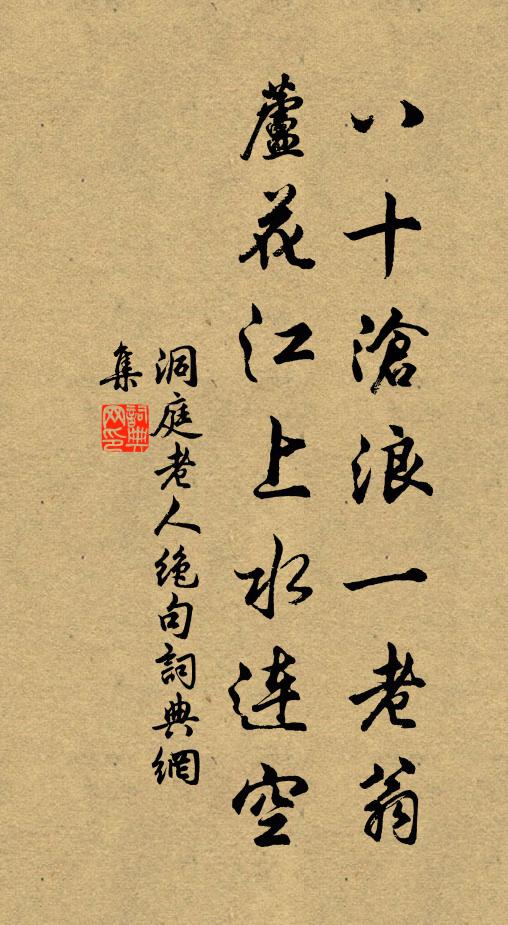 八十滄浪一老翁
蘆花江上水連空
洞庭老人絶句詞典網
集
詞典
网印